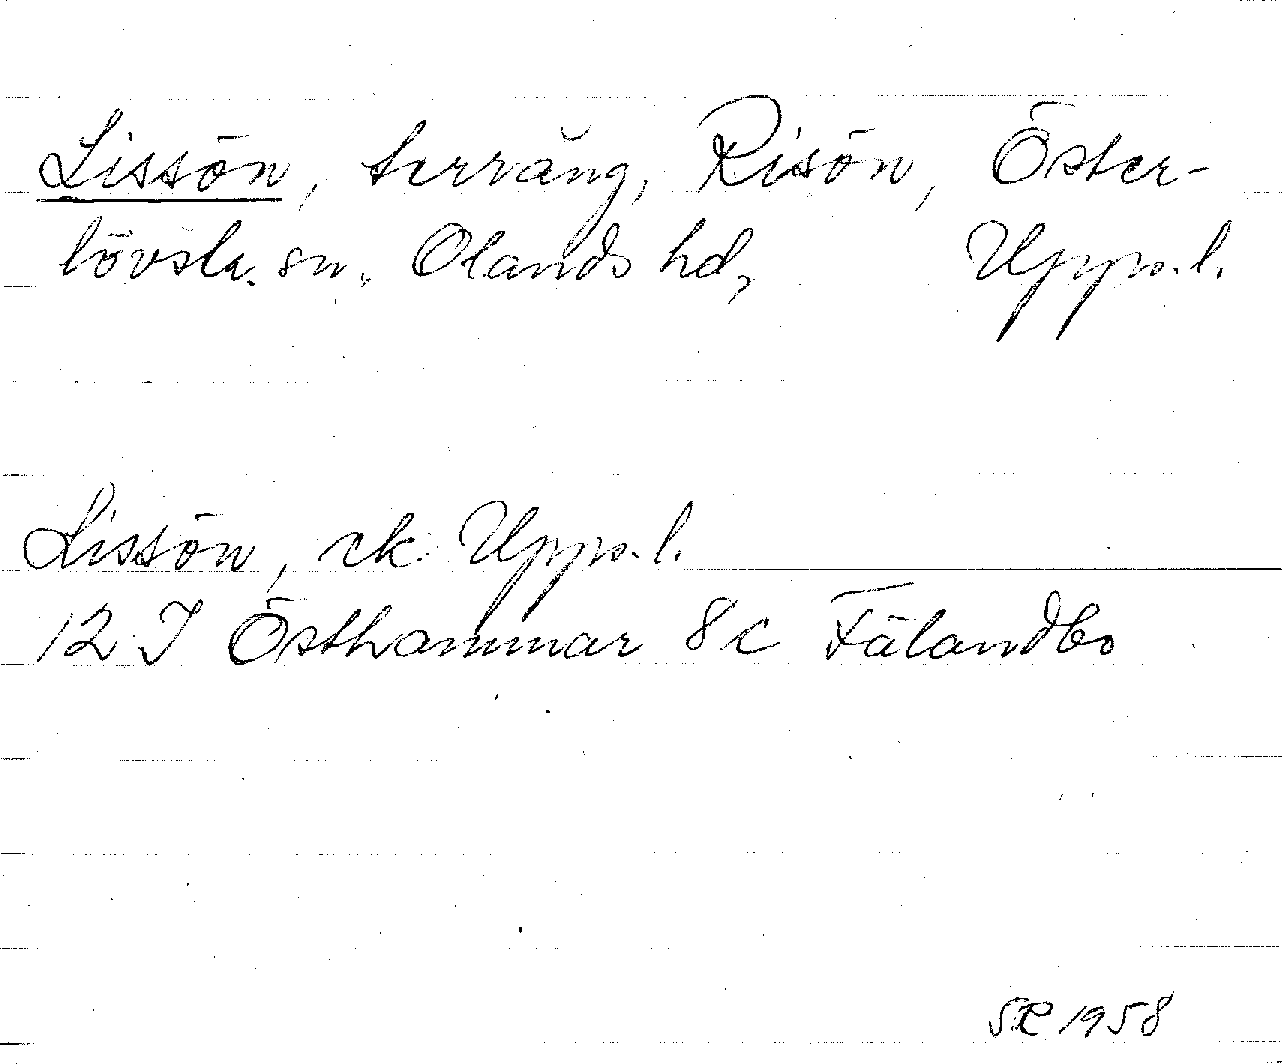 Lissön, terräng, Risön, Öster-
lövsta sn, Olands hd, Uppl.
Lissön, ek Uppl.
12 I Östhammar 8c Fälandbo
SR 1958